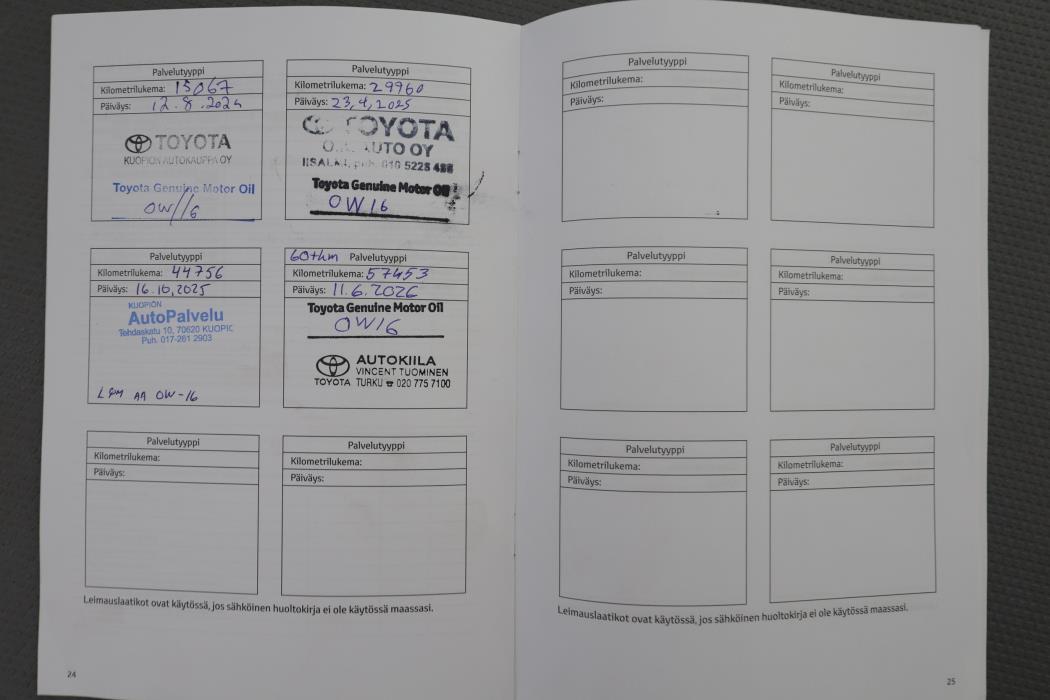 Palvelutyyppi
Kilometrilukema: 15067
Päiväys: 12.8.2024
TOYOTA
KUOPION AUTOKAUPPA OY
Toyota Genuine Motor Oil
0W//6
Palvelutyyppi
Kilometrilukema: 29960
Päiväys: 23,4,2025
TOYOTA
AUTO OY
IISALMI, puh. 010 5228 488
Toyota Genuine Motor Oil
0W16
Palvelutyyppi
Kilometrilukema: 44756
Päiväys: 16.10,2025
KUOPION
AutoPalvelu
Tehdaskatu 10, 70620 KUOPIO
Puh. 017-261 2903
AA 0W-16
60thm Palvelutyyppi
Kilometrilukema: 57453
Päiväys: 11.6.2026
Toyota Genuine Motor Oil
0W16
AUTOKIILA
VINCENT TUOMINEN
TOYOTA TURKU ☎ 020 775 7100
Palvelutyyppi
Kilometrilukema:
Päiväys:
Palvelutyyppi
Kilometrilukema:
Päiväys:
Leimauslaatikot ovat käytössä, jos sähköinen huoltokirja ei ole käytössä maassasi.
24
Palvelutyyppi
Kilometrilukema:
Päiväys:
Palvelutyyppi
Kilometrilukema:
Päiväys:
Palvelutyyppi
Kilometrilukema:
Päiväys:
Palvelutyyppi
Kilometrilukema:
Päiväys:
Palvelutyyppi
Kilometrilukema:
Päiväys:
Palvelutyyppi
Kilometrilukema:
Päiväys:
Leimauslaatikot ovat käytössä, jos sähköinen huoltokirja ei ole käytössä maassasi.
25